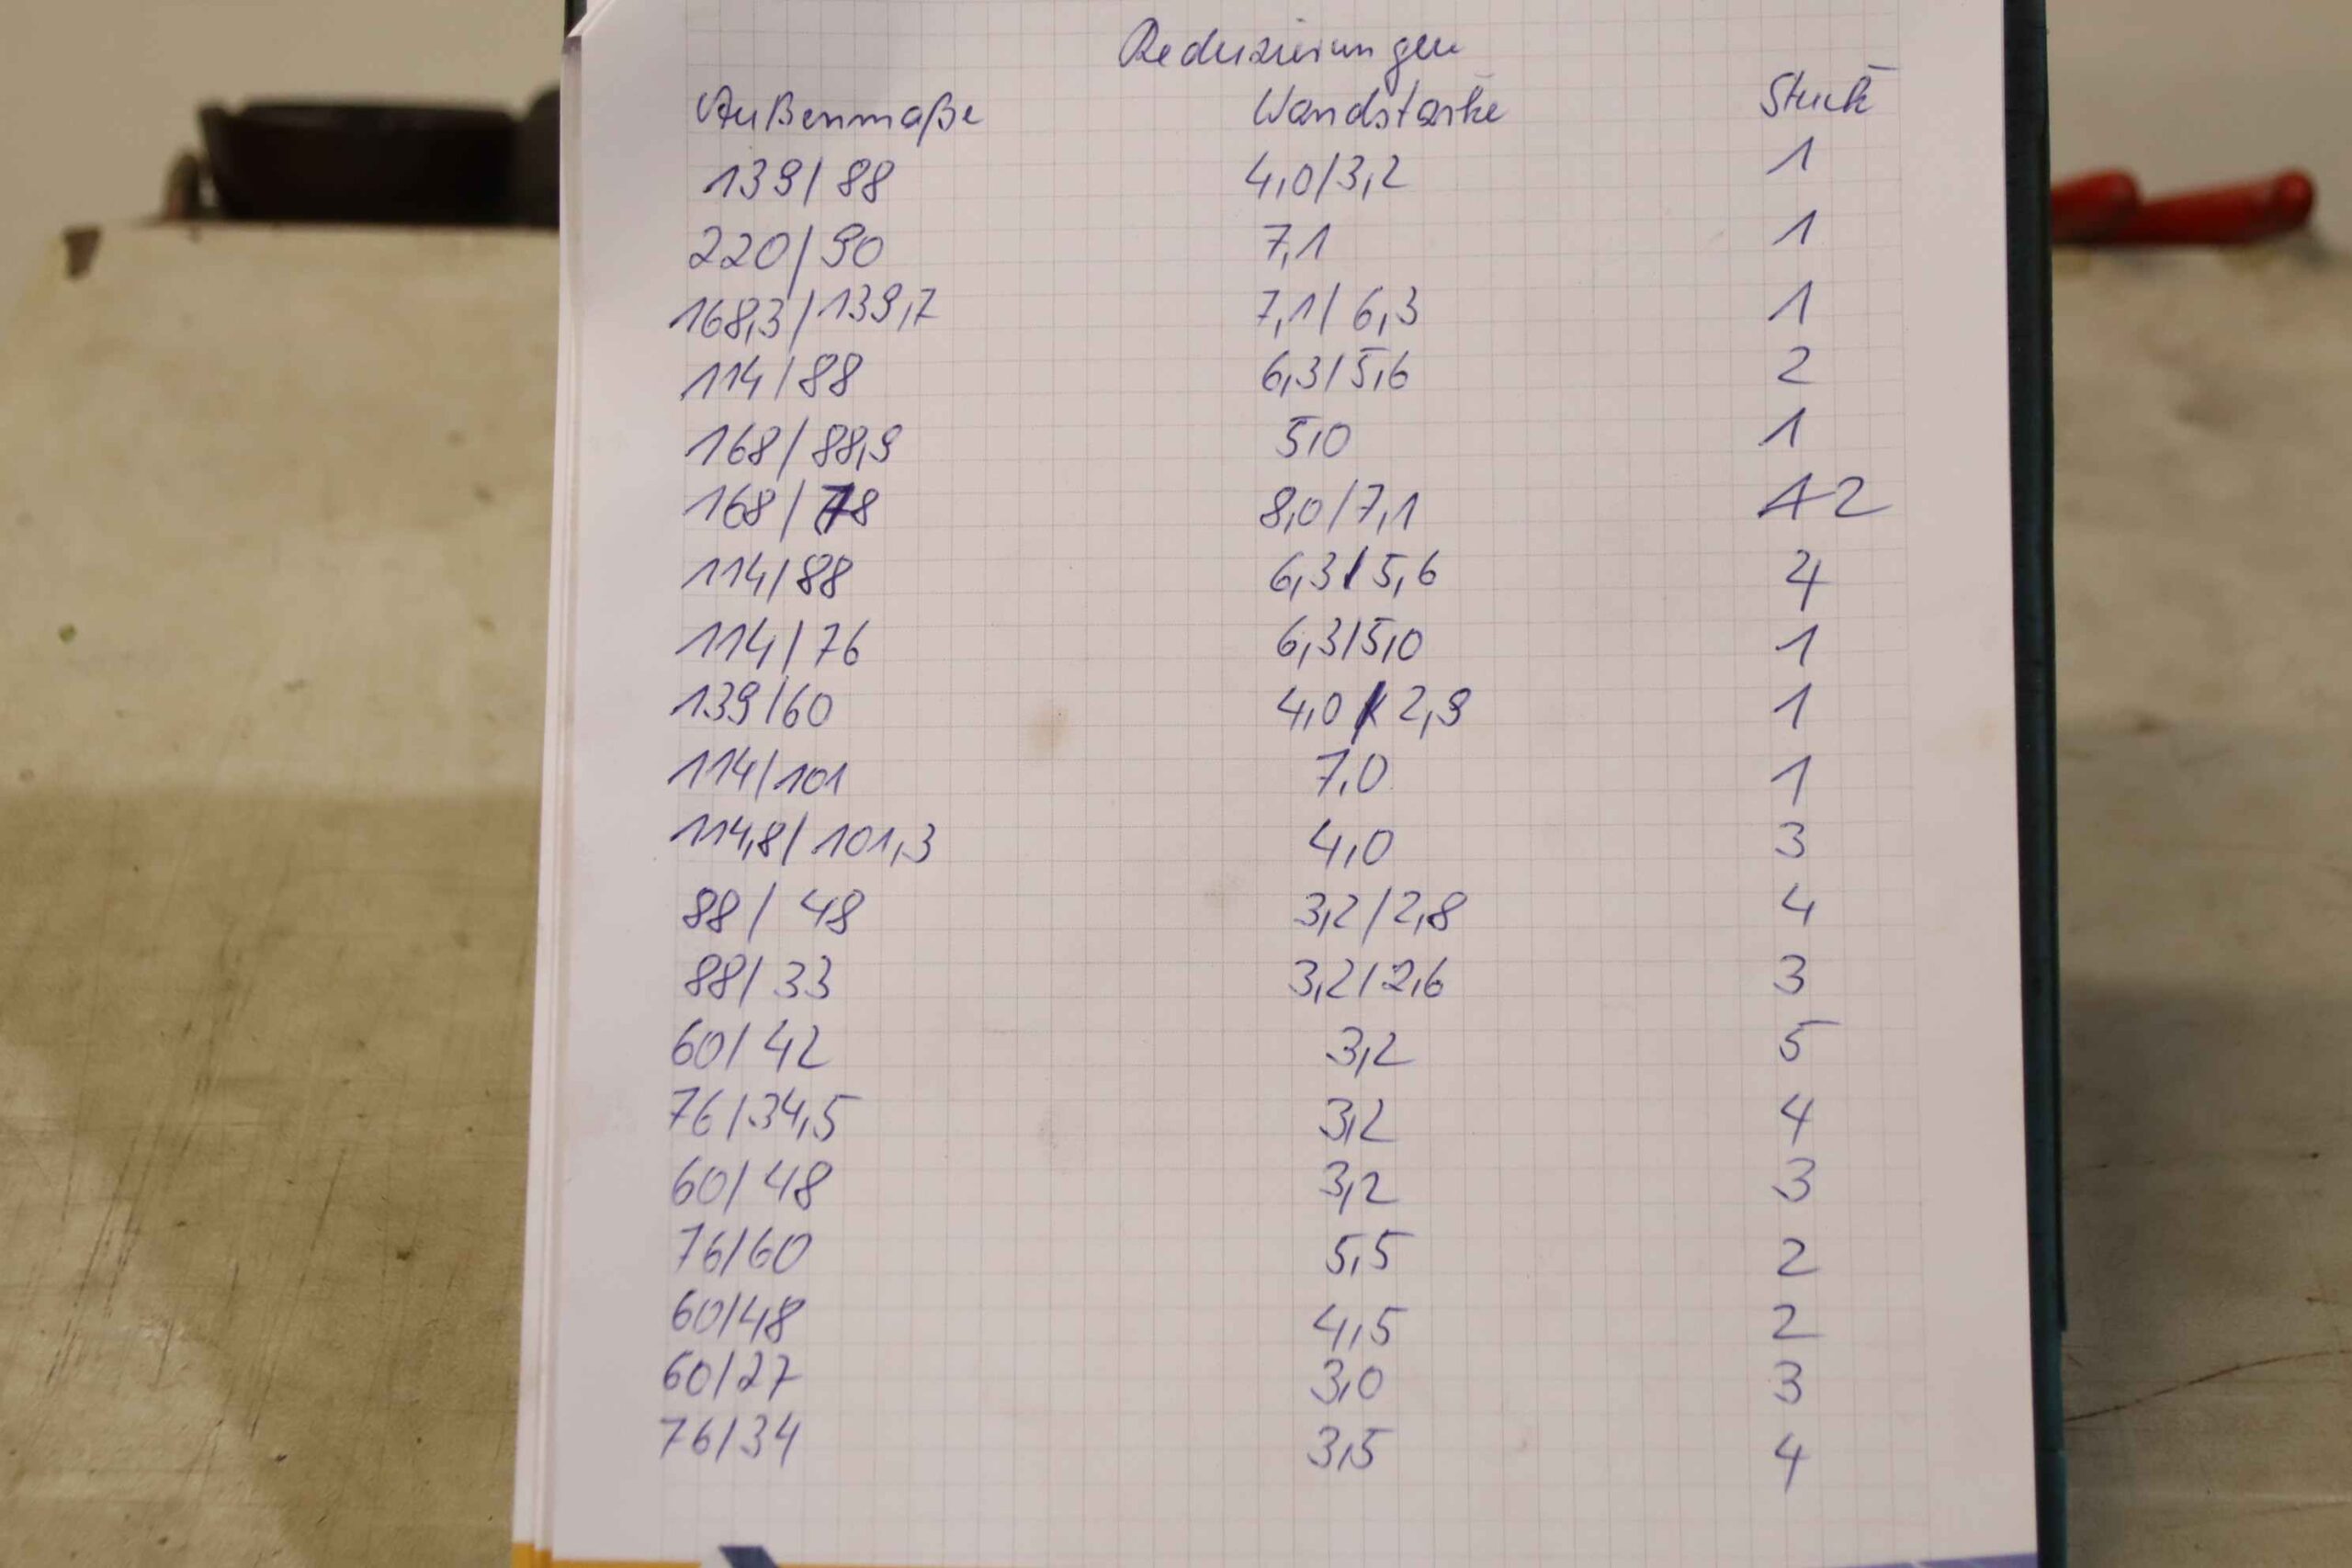 Reduzierungen
Außenmaße Wandstärke Stück
139/88 4,0/3,2 1
220/90 7,1 1
168,3/139,7 7,1/6,3 1
114/88 6,3/5,6 2
168/88,9 5,0 1
168/78 8,0/7,1 2
114/88 6,3/5,6 4
114/76 6,3/5,0 1
139/60 4,0/2,9 1
114/101 7,0 1
114,8/101,3 4,0 3
88/48 3,2/2,8 4
88/33 3,2/2,6 3
60/42 3,2 5
76/34,5 3,2 4
60/48 3,2 3
76/60 5,5 2
60/48 4,5 2
60/27 3,0 3
76/34 3,5 4